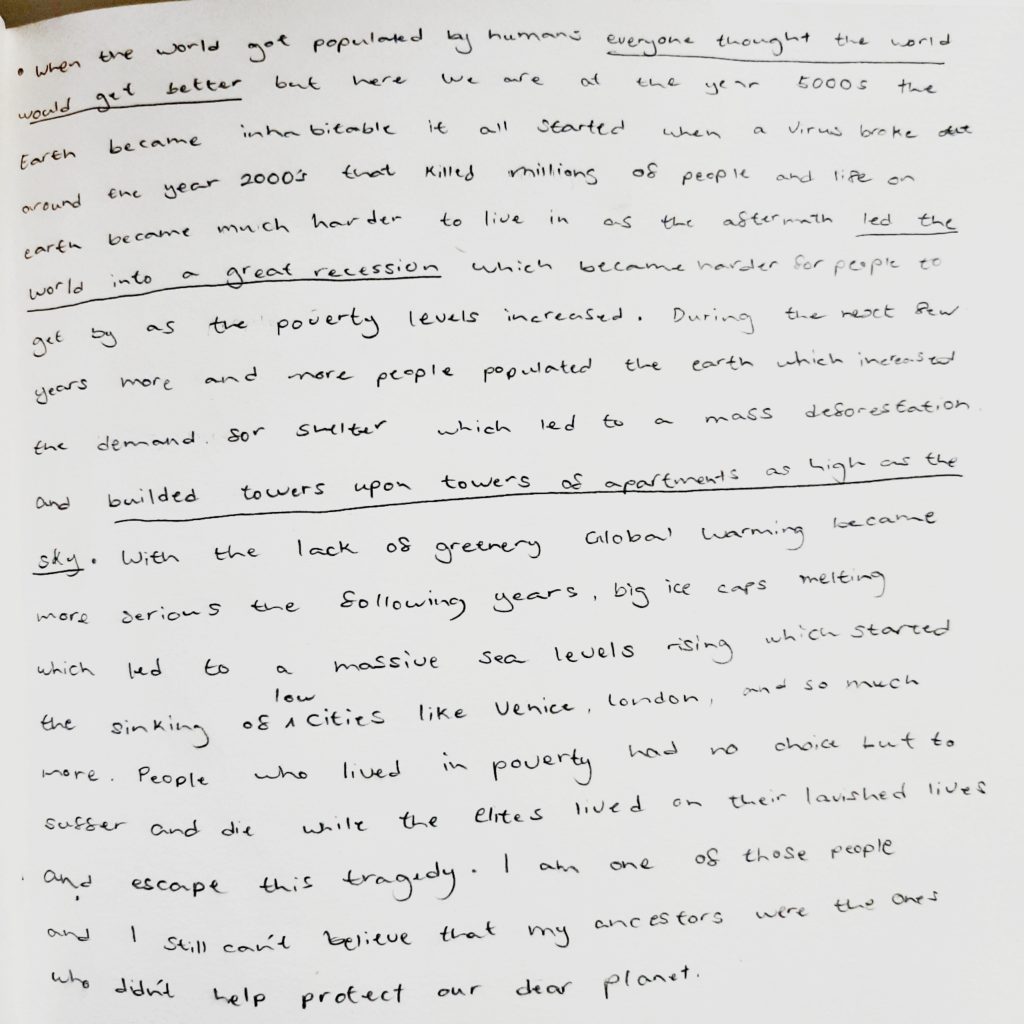 • When the world got populated by humans everyone thought the world
would get better but here we are at the year 5000s the
Earth became inhabitable it all started when a virus broke out
around the year 2000's that killed millions of people and life on
earth became much harder to live in as the aftermath led the
world into a great recession which became harder for people to
get by as the poverty levels increased. During the next few
years more and more people populated the earth which increased
the demand for shelter which led to a mass deforestation
and builded towers upon towers of apartments as high as the
sky. With the lack of greenery Global warming became
more serious the following years, big ice caps melting
which led to a massive sea levels rising which started
the sinking of low cities like Venice, London, and so much
more. People who lived in poverty had no choice but to
suffer and die while the Elites lived on their lavished lives
and escape this tragedy. I am one of those people
and I still can't believe that my ancestors were the ones
who didn't help protect our dear planet.